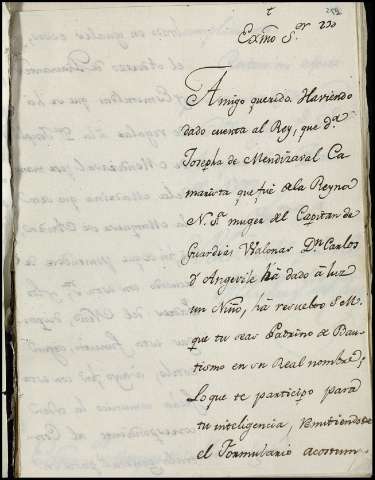 Exmõ S.ʳ
Amigo querido. Haviendo
dado cuenta al Rey, que D.ª
Josepha de Mendizaval Ca-
marista que fué de la Reyna
N. S.ª muger del Capitan de
Guardias Walonas D.ⁿ Carlos
d'Angevile há dado á luz
un Niño, há resuelto S.M.
que tu seas Padrino de Bau-
tismo en su Real nombre;
Lo que te participo para
tu inteligencia, remitiendote
el Formulario acostum-